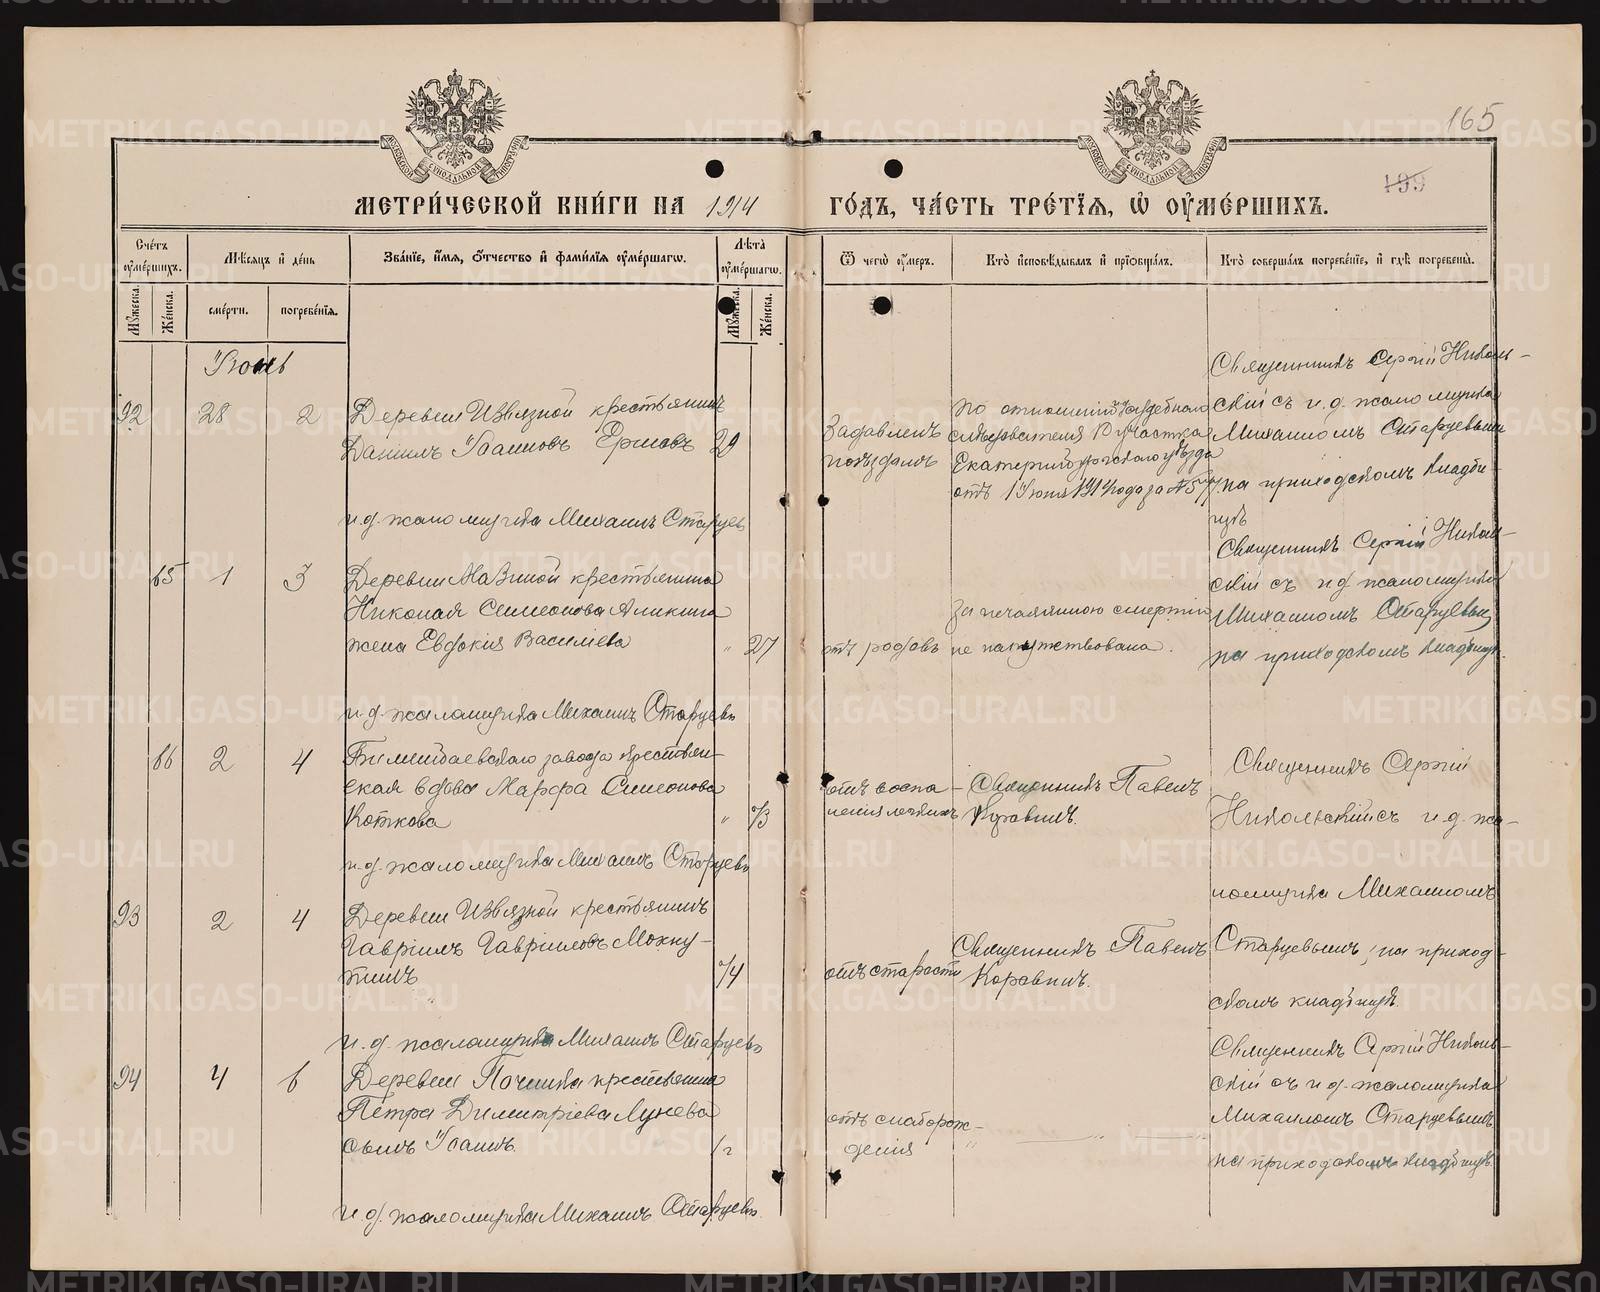 165
199
МЕТРИЧЕСКОЙ КНИГИ НА 1914
ГОДЪ, ЧАСТЬ ТРЕТІЯ, Ѿ ОУМЕРШИХЪ.
Счетъ оумершихъ.
Мѣсяцъ и день
Званіе, имя, отчество и фамилія оумершагѡ.
Лѣта оумершагѡ.
Ѿ чегѡ оумеръ.
Кто исповѣдывалъ и пріобщалъ.
Кто совершалъ погребеніе, и гдѣ погребены.
Мужеска.
Женска.
смерти.
погребенія.
Мужеска.
Женска.
Іюнь
92
28
2
Деревни Извязной крестьянинъ
Даніилъ Іоанновъ Ершовъ
29
Задавленъ
поѣздомъ
по отношенію Судебнаго
слѣдователя 10 участка
Екатеринбургскаго уѣзда
отъ 1 Іюня 1914 года за №577
Священникъ Сергій Николь-
скій съ и.д. псаломщика
Михаиломъ Старцевымъ
на приходскомъ кладби-
щѣ
и.д. псаломщика Михаилъ Старцевъ
65
1
3
Деревни Мазиной крестьянина
Николая Симеонова Аликина
жена Евдокія Василіева
" 27
отъ родовъ
За нечаянною смертію
не напутствована.
Священникъ Сергій Николь-
скій съ и.д. псаломщика
Михаиломъ Старцевымъ
на приходскомъ кладбищѣ.
и.д. псаломщика Михаилъ Старцевъ
66
2
4
Билимбаевскаго завода крестьян-
ская вдова Марфа Симеонова
Коткова
" 73
отъ воспа-
ленія легкихъ
Священникъ Павелъ
Коровинъ.
Священникъ Сергій
Никольскій съ и.д. пса-
ломщика Михаиломъ
Старцевымъ, на приход-
скомъ кладбищѣ.
и.д. псаломщика Михаилъ Старцевъ
93
2
4
Деревни Извязной крестьянинъ
Гавріилъ Гавріиловъ Мокну-
шинъ
74
отъ старости
Священникъ Павелъ
Коровинъ.
и.д. псаломщика Михаилъ Старцевъ
94
4
6
Деревни Починка крестьянина
Петра Димитріева Лунева
сынъ Іоаннъ.
1/2
отъ слаборож-
денія
Священникъ Сергій Николь-
скій съ и.д. псаломщика
Михаиломъ Старцевымъ
на приходскомъ кладбищѣ.
и.д. псаломщика Михаилъ Старцевъ
METRIKI.GASO-URAL.RU